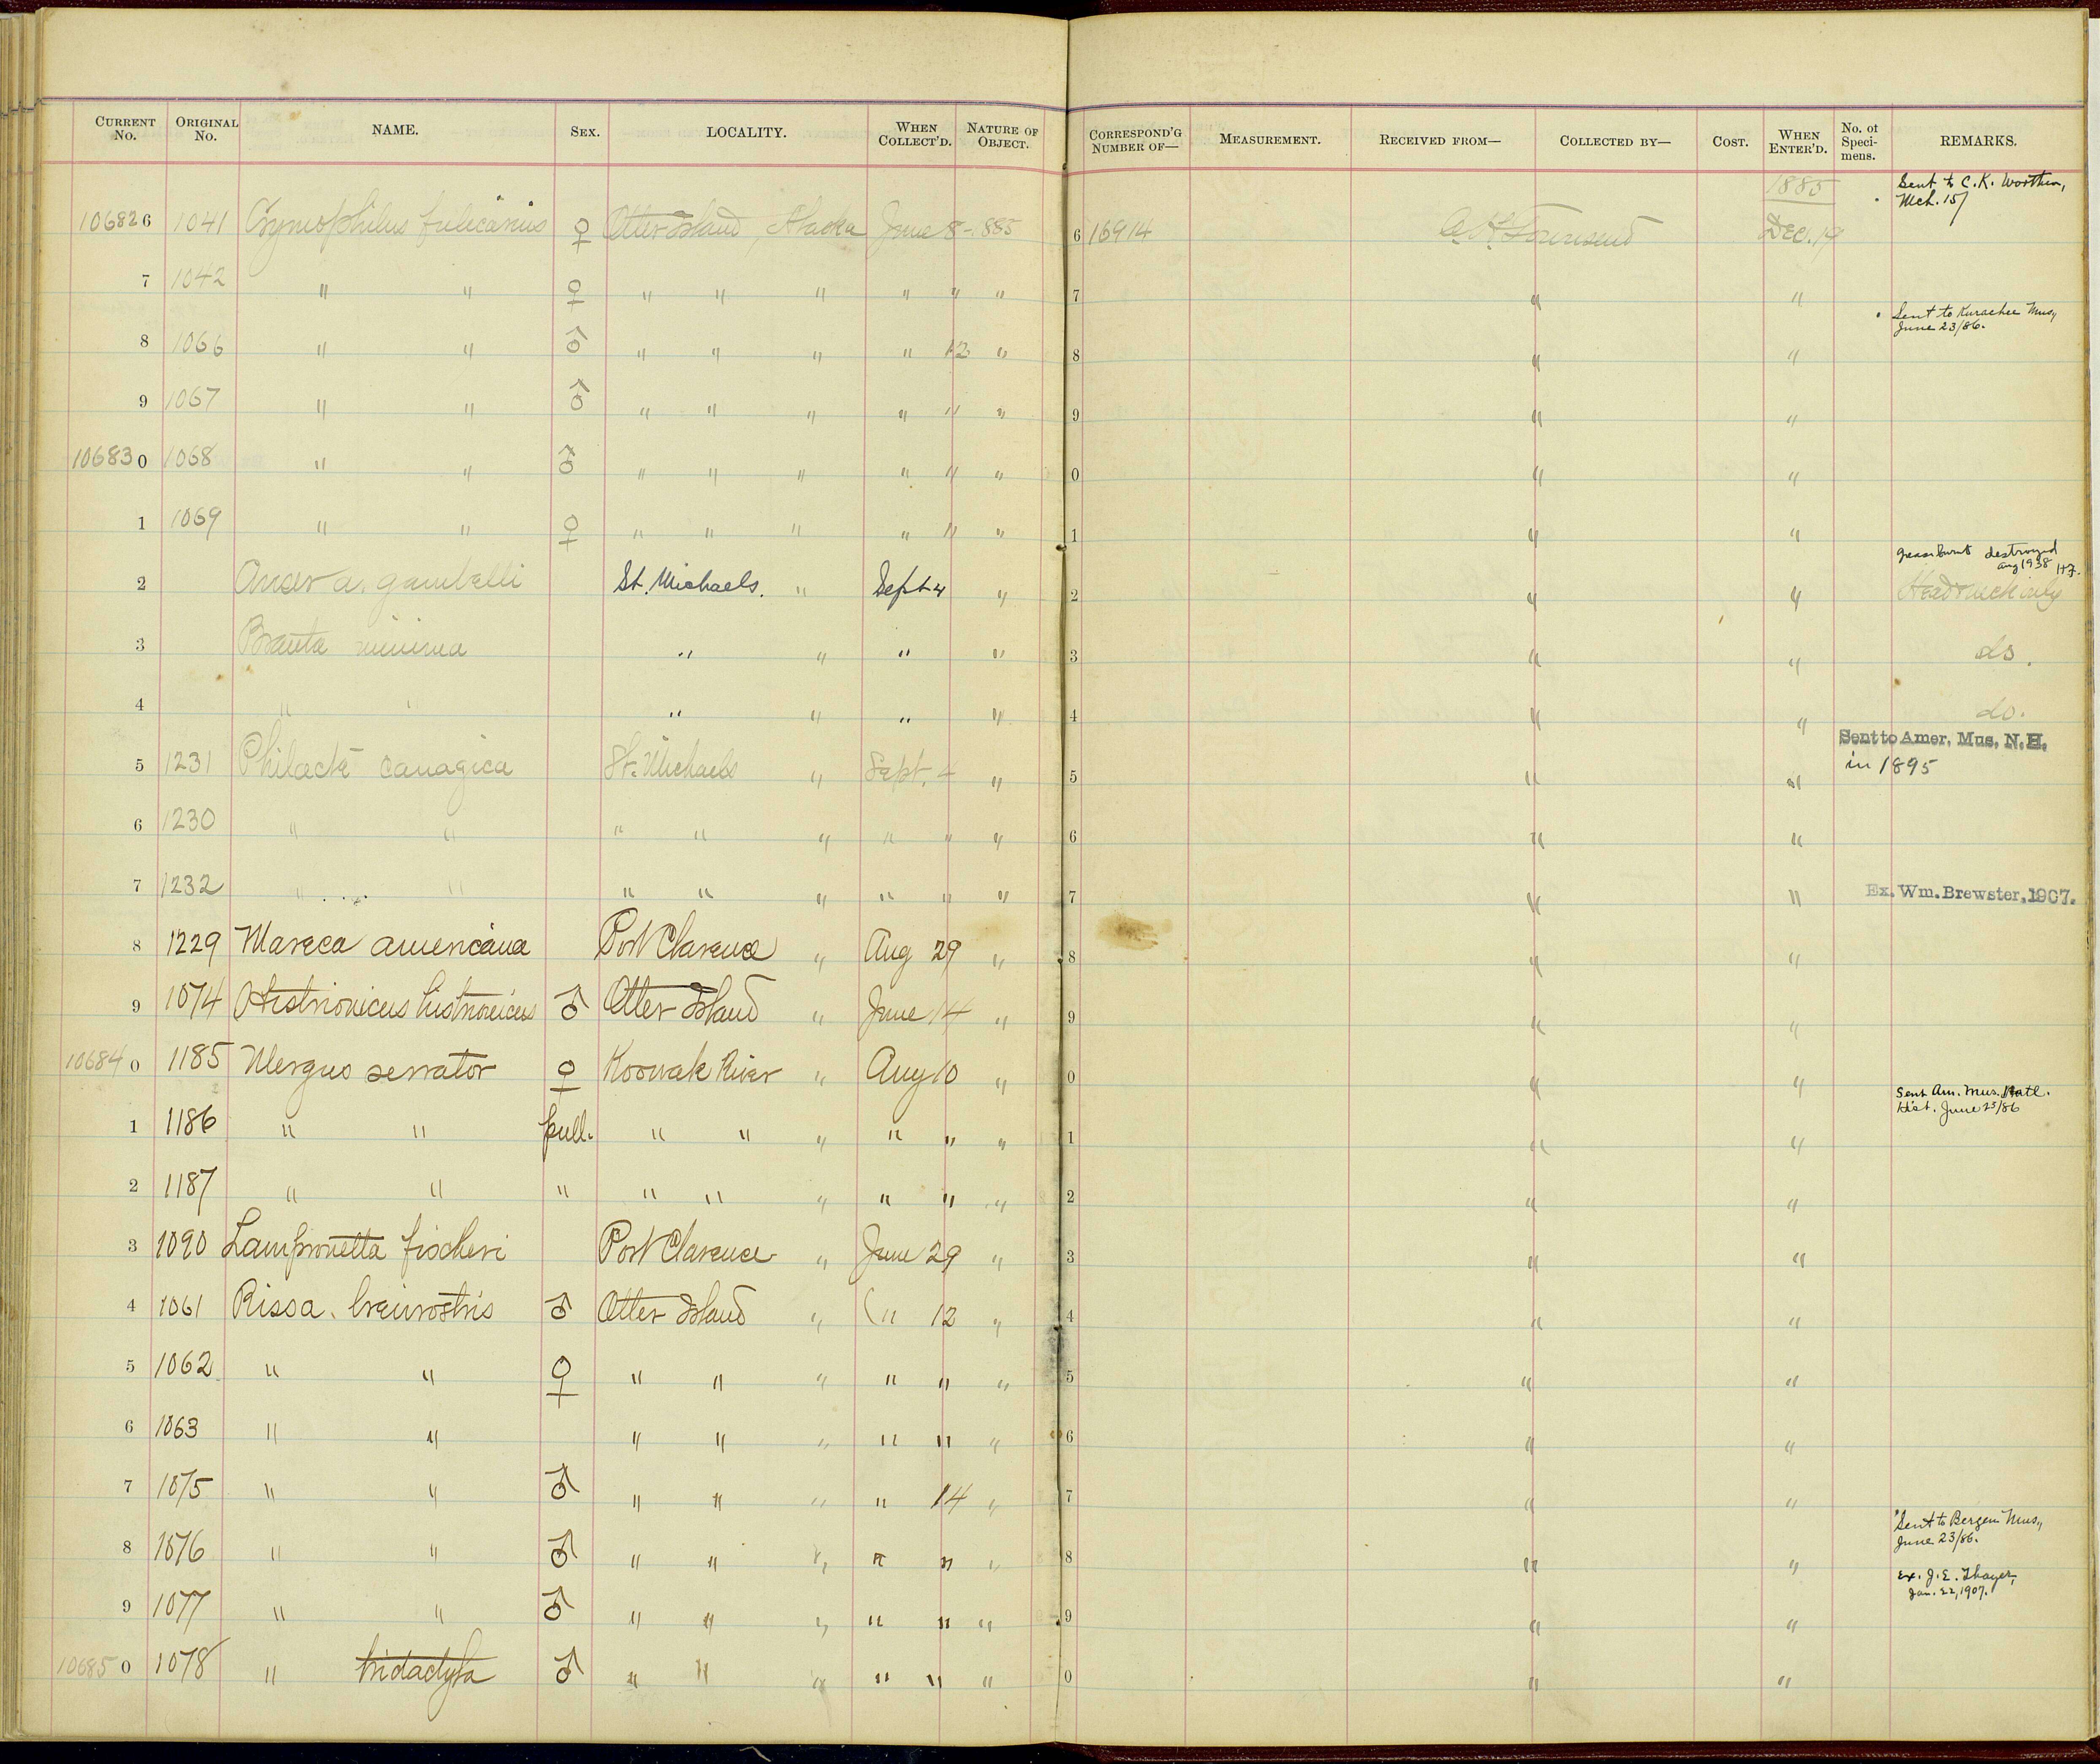 CURRENT No. ORIGINAL No. NAME. SEX. LOCALITY. WHEN COLLECT'D. NATURE OF OBJECT. CORRESPOND'G NUMBER OF— MEASUREMENT. RECEIVED FROM— COLLECTED BY— COST. WHEN ENTER'D. No. of Specimens. REMARKS.
1885 Sent to C. K. Worthen,
Mch. 15/
106826 1041 Crymophilus fulicarius ♀ Otter Island, Alaska June 8 - 885 6 16914 C. H. Townsend Dec. 19
7 1042 " " ♀ " " " " " " 7 " "
Sent to Kurachee Mus,,
June 23/86.
8 1066 " " ♂ " " " " 12 " 8 " "
9 1067 " " ♂ " " " " " " 9 " "
106830 1068 " " ♂ " " " " " " 0 " "
1 1069 " " ♀ " " " " " " 1 " "
destroyed
Aug 1938 H.F.
2 Anser a. gambelli St. Michaels. " Sept 4 " 2 " " Head & neck only
3 Branta minima " " " " 3 " " do.
4 " " " " " " 4 " " do.
Sent to Amer. Mus. N. H.
in 1895
5 1231 Philacte canagica St. Michaels " Sept. 4 " 5 " "
6 1230 " " " " " " " " 6 " "
7 1232 " " " " " " " " 7 " " Ex. Wm. Brewster, 1907.
8 1229 Mareca americana Port Clarence " Aug 29 " 8 " "
9 1074 Histrionicus histrionicus ♂ Otter Island " June 14 " 9 " "
106840 1185 Mergus serrator ♀ Koowak River " Aug 10 " 0 " "
Sent Am. Mus. Natl.
Hist. June 23/86
1 1186 " " pull. " " " " " " 1 " "
2 1187 " " " " " " " " " 2 " "
3 1090 Lampronetta fischeri Port Clarence " June 29 " 3 " "
4 1061 Rissa brevirostris ♂ Otter Island " " 12 " 4 " "
5 1062 " " ♀ " " " " " " 5 " "
6 1063 " " " " " " " " 6 " "
7 1075 " " ♂ " " " " 14 " 7 " "
Sent to Bergen Mus,,
June 23/86.
8 1076 " " ♂ " " " " " " 8 " "
Ex. J. E. Thayer,
Jan. 22, 1907.
9 1077 " " ♂ " " " " " " 9 " "
106850 1078 " tridactyla ♂ " " " " " " 0 " "